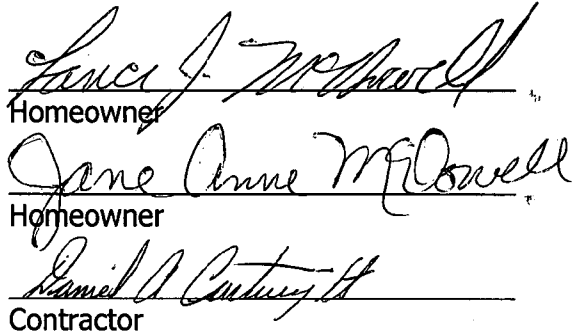 Lance J. McDowell
Homeowner
Jane Anne McDowell
Homeowner
Daniel A Cartwright
Contractor